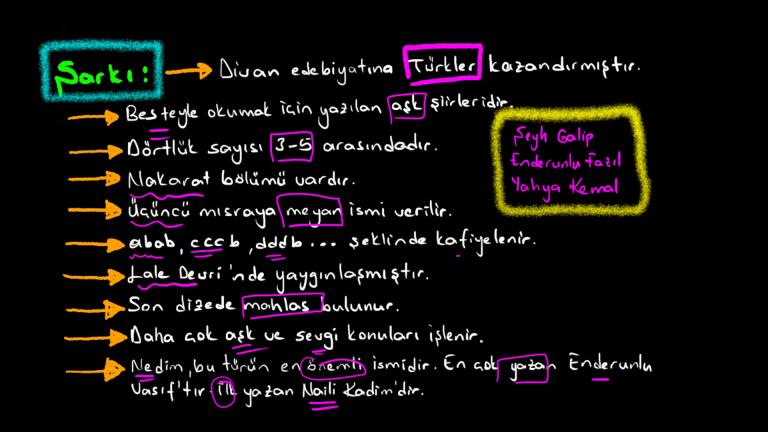 Şarkı: → Divan edebiyatına Türkler kazandırmıştır.
→ Besteyle okumak için yazılan aşk şiirleridir.
→ Dörtlük sayısı 3-5 arasındadır.
→ Nakarat bölümü vardır.
→ Üçüncü mısraya meyan ismi verilir.
→ abab, cccb, dddb... şeklinde kafiyelenir.
→ Lale Devri'nde yaygınlaşmıştır.
→ Son dizede mahlas bulunur.
→ Daha çok aşk ve sevgi konuları işlenir.
→ Nedim, bu türün en önemli ismidir. En çok yazan Enderunlu
Vasıf'tır. İlk yazan Naili Kadim'dir.
Şeyh Galip
Enderunlu Fazıl
Yahya Kemal